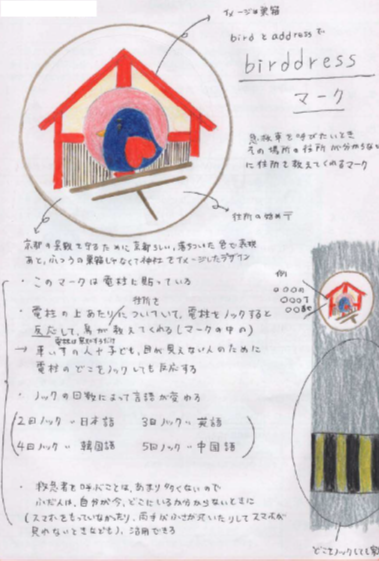 イメージは巣箱
bird と address で
birddress
マーク
救急車を呼びたいとき
その場所の住所が分からない
に住所を教えてくれるマーク
住所の始め〒
京都の景観を守るために京都らしい、落ちついた色で表現
あと、ふつうの巣箱じゃなくて神社をイメージしたデザイン
・このマークは電柱に貼っている
住所を
・電柱の上あたりについていて、電柱をノックすると
反応して、鳥が教えてくれる(マークの中の)
→ 車いすの人や子ども、目が見えない人のために
電柱のどこをノックしても反応する
・ノックの回数によって言語が変わる
2回ノック‥日本語 3回ノック‥英語
4回ノック‥韓国語 5回ノック‥中国語
・救急車を呼ぶことは、あまり多くないので
ふだんは、自分が今、どこにいるか分からないときに
(スマホをもっていなかったり、両手がふさがっていたりしてスマホが
見れないときなども)、活用できる
例
どこをノックしても